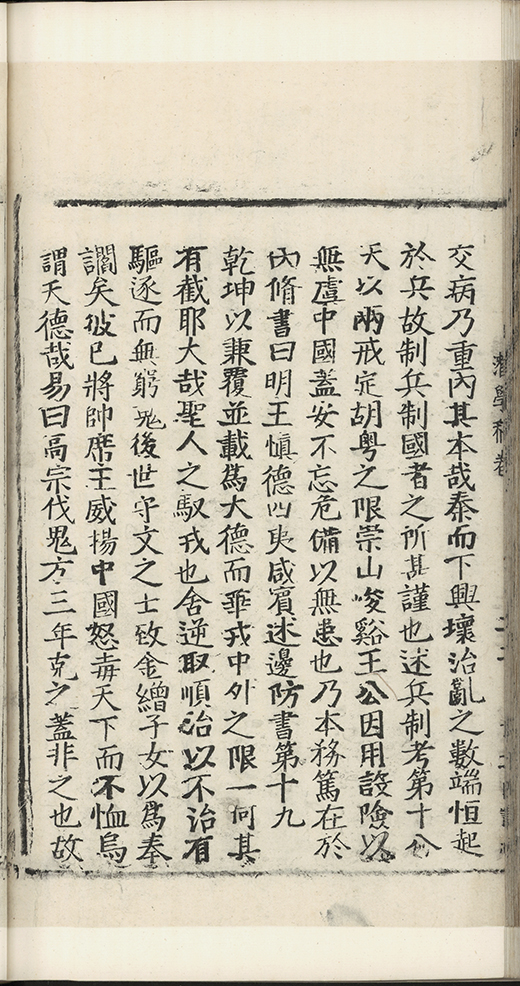 潛學稿卷
交病乃重內其本哉秦而下興壞治亂之數端恒起
於兵故制兵制國者之所甚謹也述兵制考第十八
天以兩戒定胡粤之限崇山峻谿王公因用設險以
無虞中國蓋安不忘危備以無患也乃本務篤在於
內脩書曰明王慎德四夷咸賓述邊防書第十九
乾坤以兼覆並載爲大德而華戎中外之限一何其
有截耶大哉聖人之馭戎也舍逆取順治以不治有
驅逐而無窮後世守文之士致金繒子女以爲奉
矣彼已將帥席王威揚中國怒毒天下而不恤烏
謂天德哉易曰高宗伐鬼方三年克之蓋非之也故